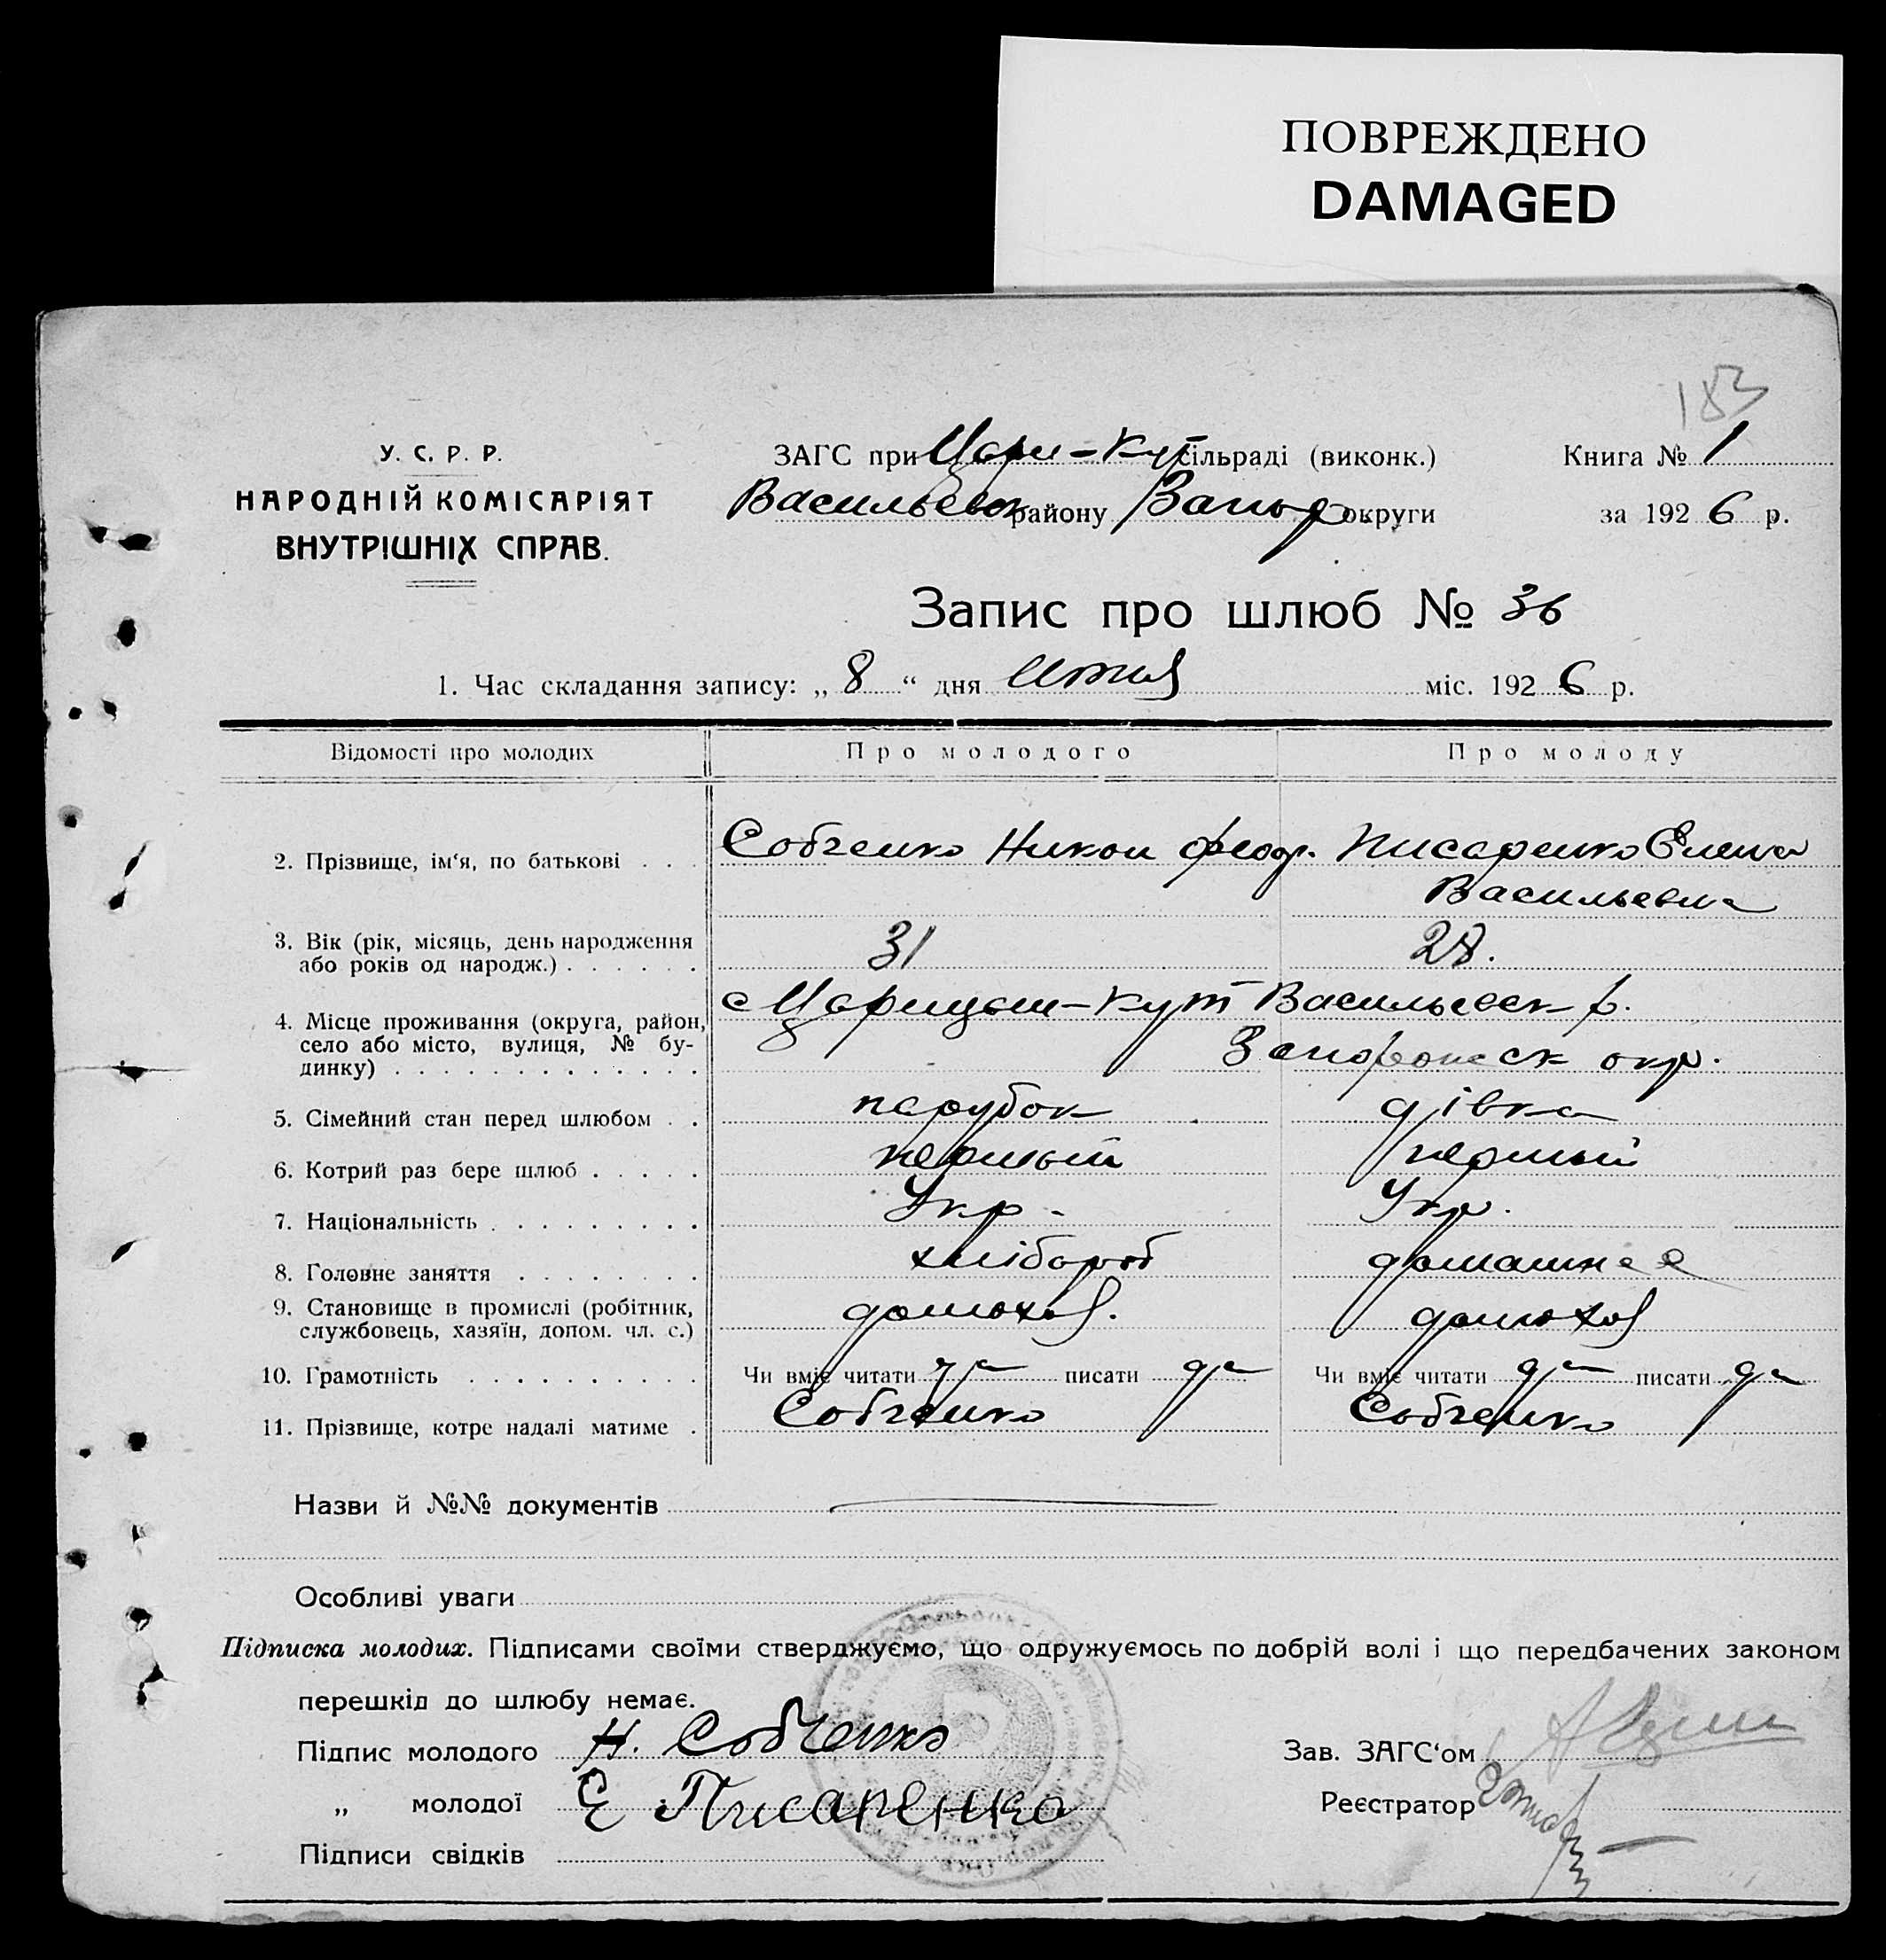 ПОВРЕЖДЕНО
DAMAGED
183
У. С. Р. Р.
НАРОДНІЙ КОМІСАРІЯТ
ВНУТРІШНІХ СПРАВ.
ЗАГС при Цари-Кут сільраді (виконк.)
Васильевск району Запор округи
Книга № 1
за 1926 р.
Запис про шлюб № 36
1. Час складання запису: „ 8 “ дня міс. 1926 р.
Відомості про молодих Про молодого Про молоду
2. Прізвище, ім‘я, по батькові . . . Собченко Никон Феодр. Писаренко Елена
Васильевна
3. Вік (рік, місяць, день народження
або років од народж.) . . . . . . 31 28.
4. Місце проживання (округа, район,
село або місто, вулиця, № бу-
динку) . . . . . . . . . . . . . с Царицын-Кут Васильевск р.
Запорожск окр.
5. Сімейний стан перед шлюбом . . парубок дівка
6. Котрий раз бере шлюб . . . . . первый первый
7. Національність . . . . . . . . . Укр. Укр.
8. Головне заняття . . . . . . . . хлібороб домашнее
9. Становище в промислі (робітник,
службовець, хазяїн, допом. чл. с.) домохоз. домохоз
10. Грамотність . . . . . . . . . . Чи вміє читати да писати да Чи вміє читати да писати да
11. Прізвище, котре надалі матиме . Собченко Собченко
Назви й №№ документів
Особливі уваги
Підписка молодих. Підписами своїми стверджуємо, що одружуємось по добрій волі і що передбачених законом
перешкід до шлюбу немає.
Підпис молодого Н. Собченко
„ молодої Е Писаренко
Підписи свідків
Зав. ЗАГС‘ом
Реєстратор